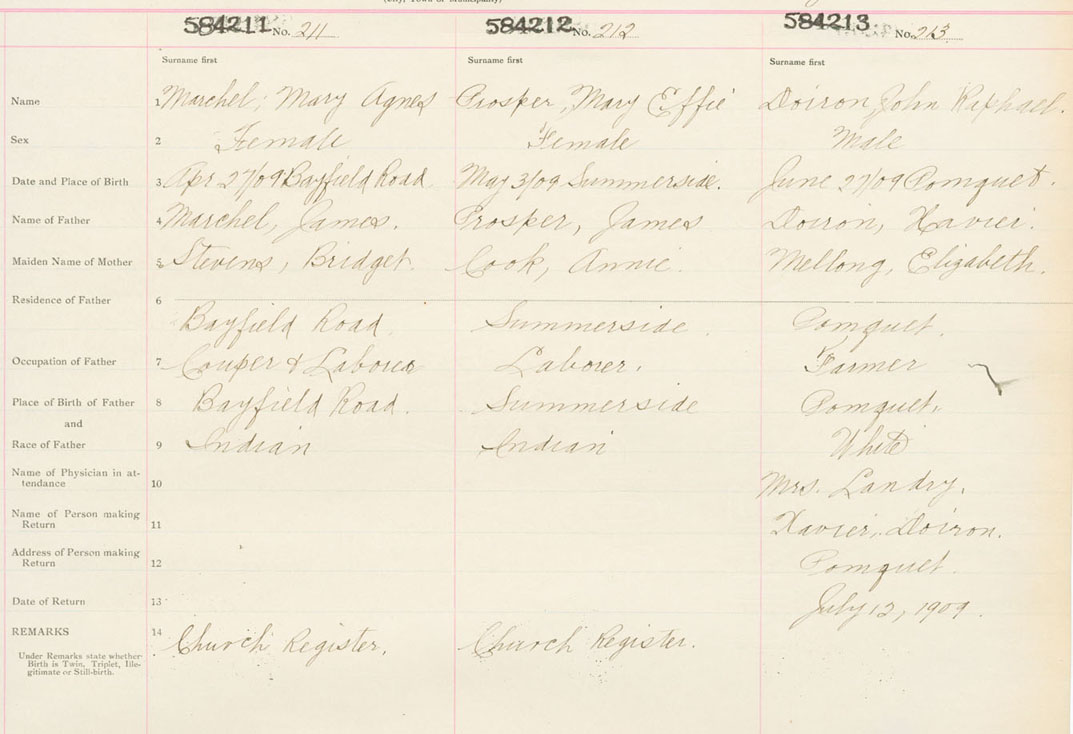 (City, Town or Municipality)
584211 No. 211 584212 No. 212 584213 No. 213
Surname first Surname first Surname first
Name 1 Marchel, Mary Agnes Prosper, Mary Effie Doiron, John Raphael.
Sex 2 Female Female Male
Date and Place of Birth 3 Apr 27/09 Bayfield Road May 3/09 Summerside. June 27/09 Pomquet.
Name of Father 4 Marchel, James. Prosper, James Doiron, Xavier.
Maiden Name of Mother 5 Stevens, Bridget. Cook, Annie. Mellong, Elizabeth.
Residence of Father 6
Bayfield Road. Summerside. Pomquet.
Occupation of Father 7 Couper & Laborer Laborer. Farmer
Place of Birth of Father 8 Bayfield Road. Summerside Pomquet.
and
Race of Father 9 Indian Indian White
Name of Physician in at-
tendance 10 Mrs. Landry.
Name of Person making
Return 11 Xavier, Doiron.
Address of Person making
Return 12 Pomquet.
Date of Return 13 July 12, 1909.
REMARKS 14 Church Register. Church Register.
Under Remarks state whether
Birth is Twin, Triplet, Ille-
gitimate or Still-birth.